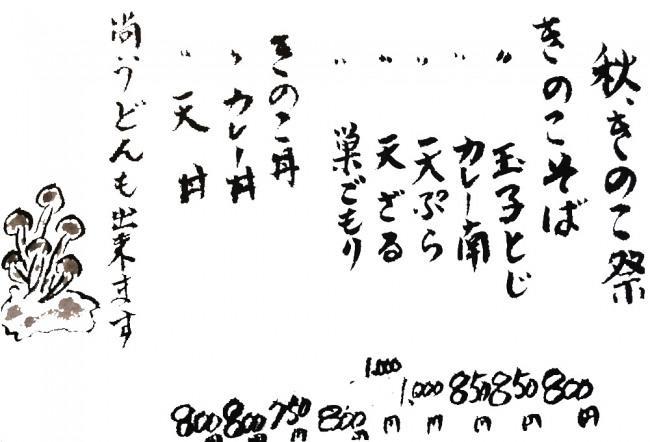 秋、きのこ祭
きのこそば 800円
〃 玉子とじ 850円
〃 カレー南 850円
〃 天ぷら 1,000円
〃 天ざる 1,000円
〃 巣ごもり 800円
きのこ丼 750円
〃 カレー丼 800円
〃 天丼 800円
尚うどんも出来ます